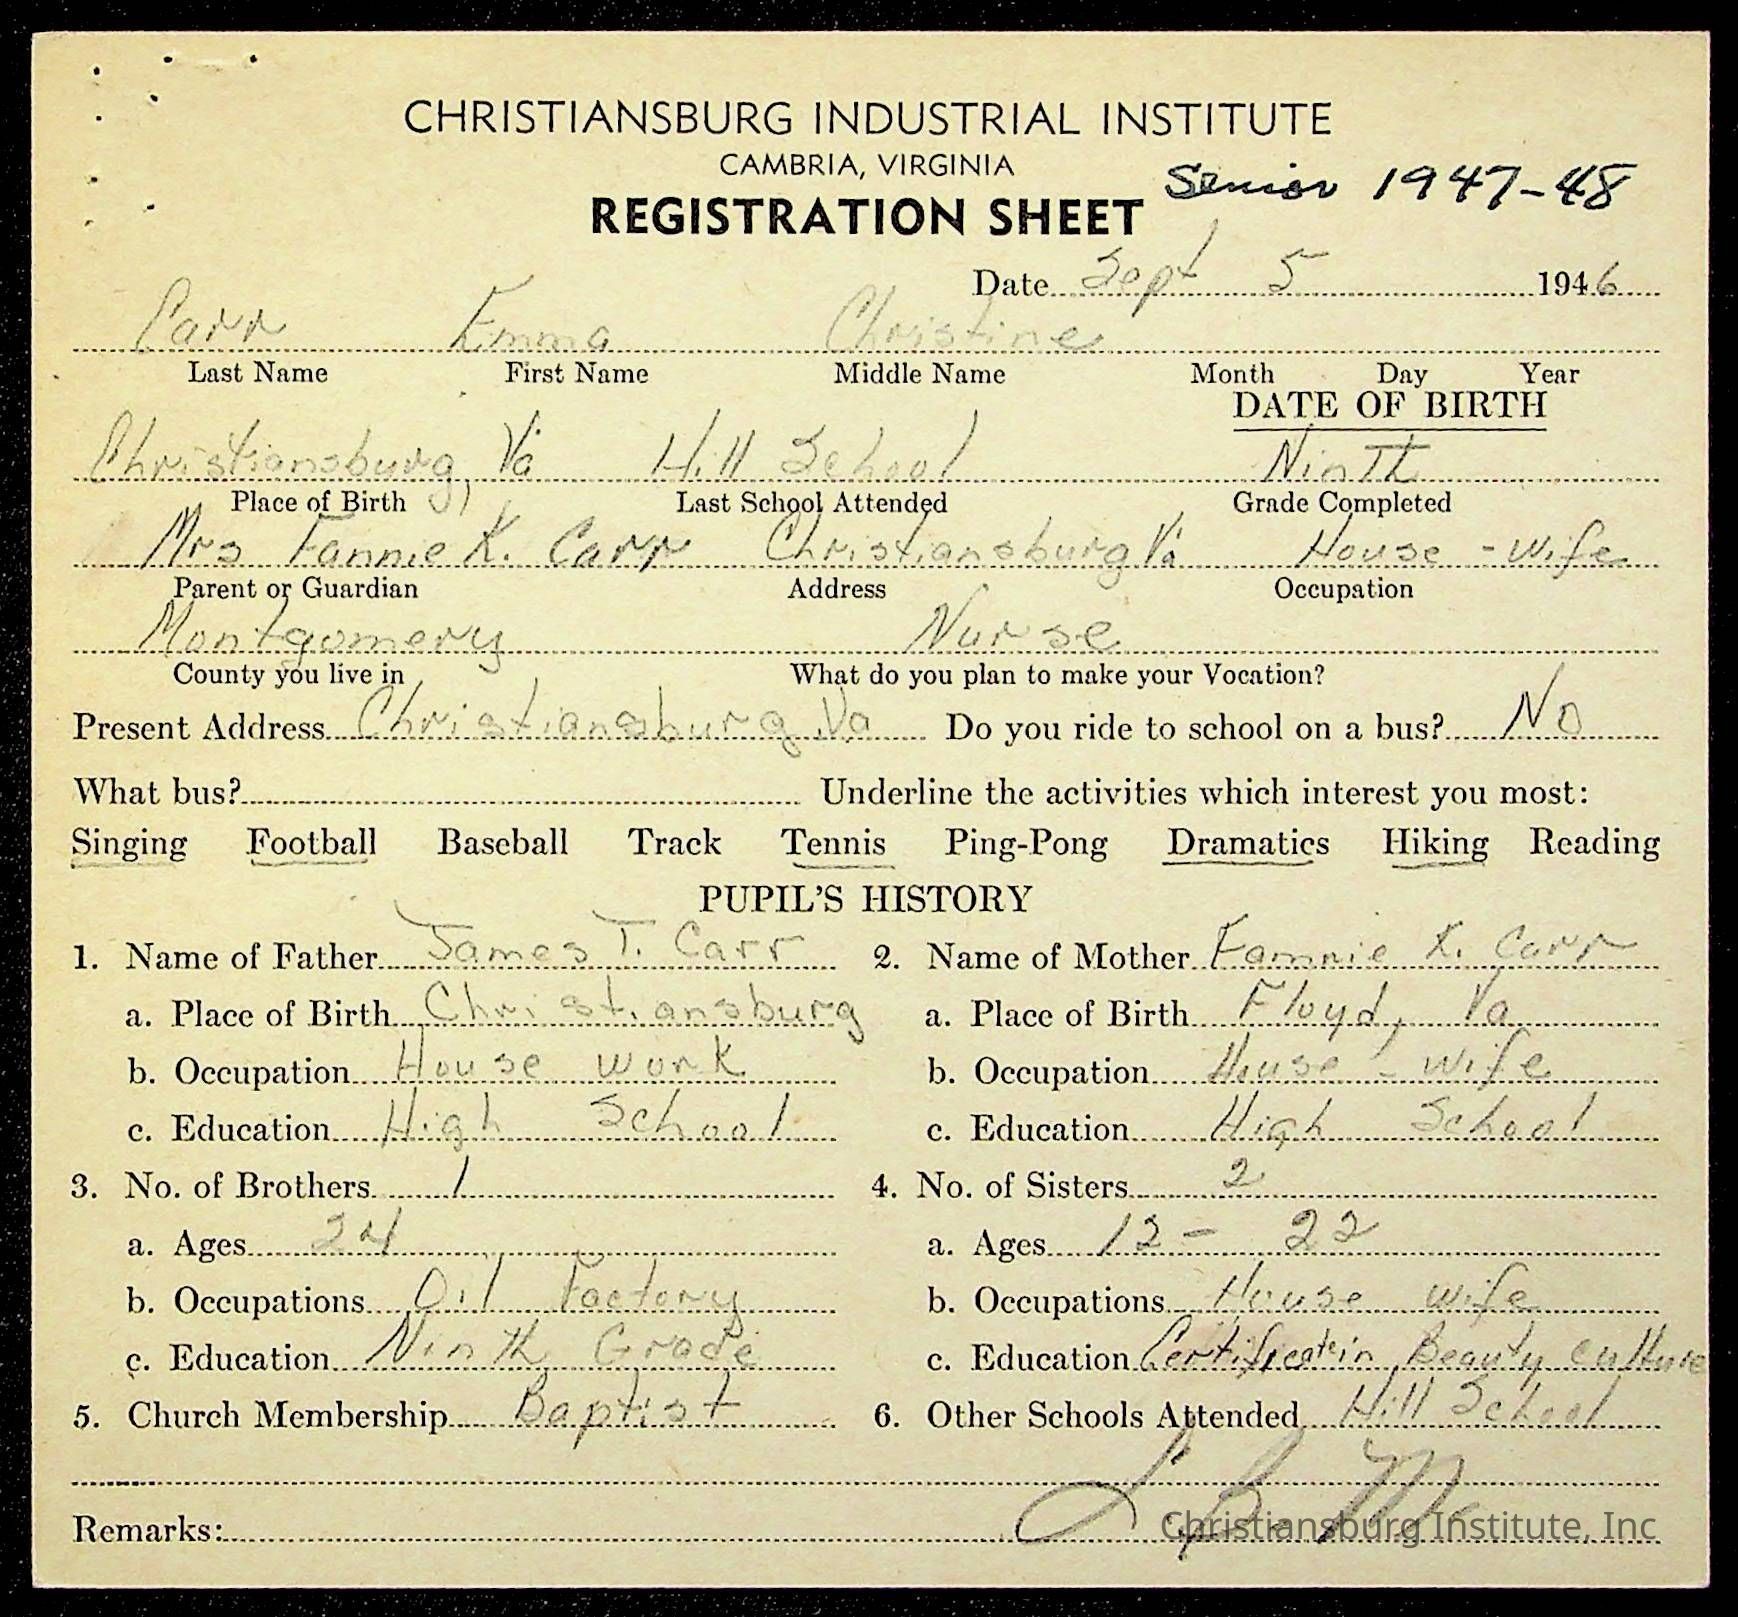 CHRISTIANSBURG INDUSTRIAL INSTITUTE
CAMBRIA, VIRGINIA
Senior 1947-48
REGISTRATION SHEET
Date Sept 5 1946
Carr Emma Christine
Last Name First Name Middle Name Month Day Year
DATE OF BIRTH
Christiansburg, Va Hill School Ninth
Place of Birth Last School Attended Grade Completed
Mrs Fannie K. Carr Christiansburg Va House-wife
Parent or Guardian Address Occupation
Montgomery Nurse
County you live in What do you plan to make your Vocation?
Present Address Christiansburg Va Do you ride to school on a bus? No
What bus? Underline the activities which interest you most:
Singing Football Baseball Track Tennis Ping-Pong Dramatics Hiking Reading
PUPIL'S HISTORY
1. Name of Father James T. Carr 2. Name of Mother Fannie K. Carr
a. Place of Birth Christiansburg a. Place of Birth Floyd, Va
b. Occupation House work b. Occupation House-wife
c. Education High School c. Education High School
3. No. of Brothers 1 4. No. of Sisters 2
a. Ages 24 a. Ages 12 - 22
b. Occupations Oil Factory b. Occupations House wife
c. Education Ninth Grade c. Education Certificate in Beauty culture
5. Church Membership Baptist 6. Other Schools Attended Hill School
Remarks:
Christiansburg Institute, Inc